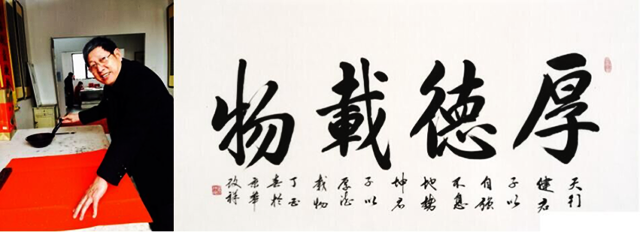 厚德載物
天行
健君
子以
自强
不息
地势
坤君
子以
厚德
载物
丁酉
春於
京華